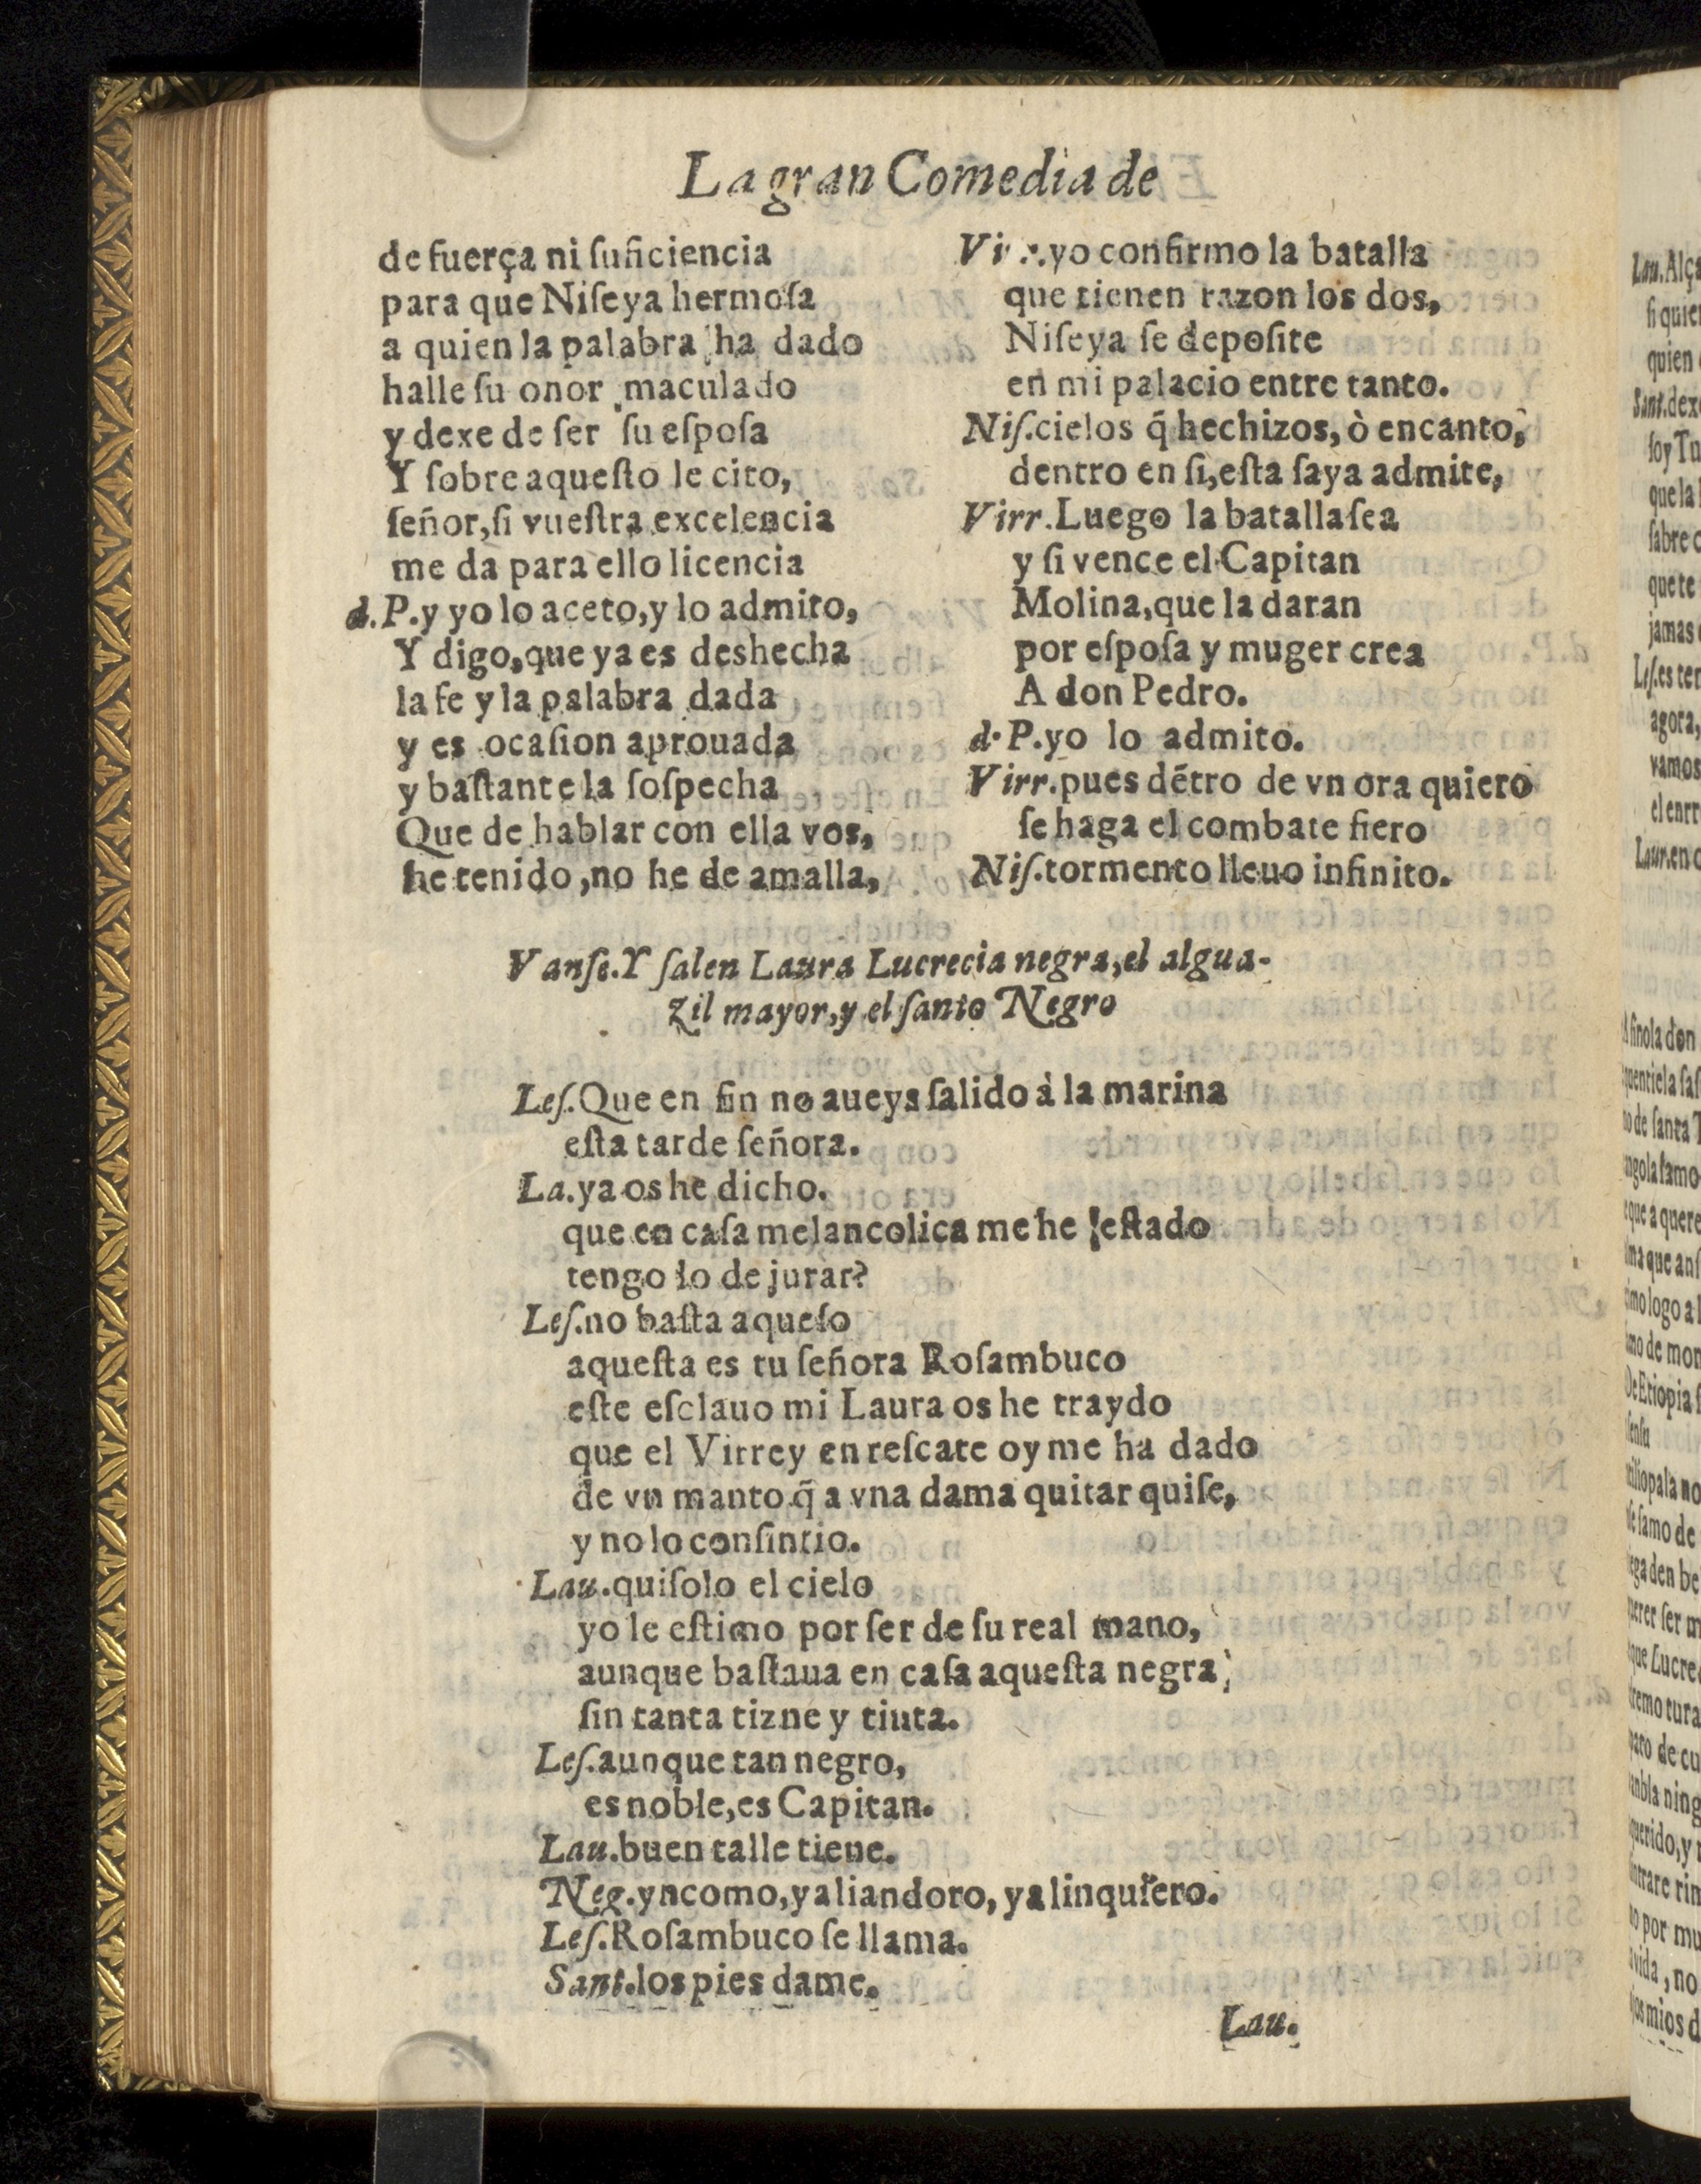 La gran Comedia de
de fuerça ni ſuficiencia
para que Niſeya hermoſa
a quien la palabra ha dado
halle ſu onor maculado
y dexe de ſer ſu eſpoſa
Y ſobre aqueſto le cito,
ſeñor, ſi vueſtra excelencia
me da para ello licencia
d.P.y yo lo aceto, y lo admito,
Y digo, que ya es deshecha
la fe y la palabra dada
y es ocaſion aprouada
y baſtante la ſoſpecha
Que de hablar con ella vos,
he tenido, no he de amalla,
Vir.yo confirmo la batalla
que tienen razon los dos,
Niſeya ſe depoſite
en mi palacio entre tanto.
Niſ.cielos q̃ hechizos, ò encanto,
dentro en ſi, eſta ſaya admite,
Virr.Luego la batalla ſea
y ſi vence el Capitan
Molina, que la daran
por eſpoſa y muger crea
A don Pedro.
d.P.yo lo admito.
Virr.pues dẽtro de vn ora quiero
ſe haga el combate fiero
Niſ.tormento lleuo infinito.
Vanſe. Y ſalen Laura Lucrecia negra, el algua-
zil mayor, y el ſanto Negro
Leſ.Que en fin no aueys ſalido à la marina
eſta tarde ſeñora.
La.ya os he dicho.
que en caſa melancolica me he eſtado
tengo lo de jurar?
Leſ.no baſta aqueſo
aqueſta es tu ſeñora Roſambuco
eſte eſclauo mi Laura os he traydo
que el Virrey en reſcate oy me ha dado
de vn manto q̃ a vna dama quitar quiſe,
y no lo conſintio.
Lau.quiſolo el cielo
yo le eſtimo por ſer de ſu real mano,
aunque baſtaua en caſa aqueſta negra,
ſin tanta tizne y tinta.
Leſ.aunque tan negro,
es noble, es Capitan.
Lau.buen talle tiene.
Neg.yncomo, yaliandoro, yalinquiero.
Leſ.Roſambuco ſe llama.
Sant.los pies dame.
Lau.
Lau.Alç
ſi quie
quien
Sant.dex
ſoy Tu
que la
ſabre
que te
jamas
Leſ.es
agora,
vamos
Laur.en